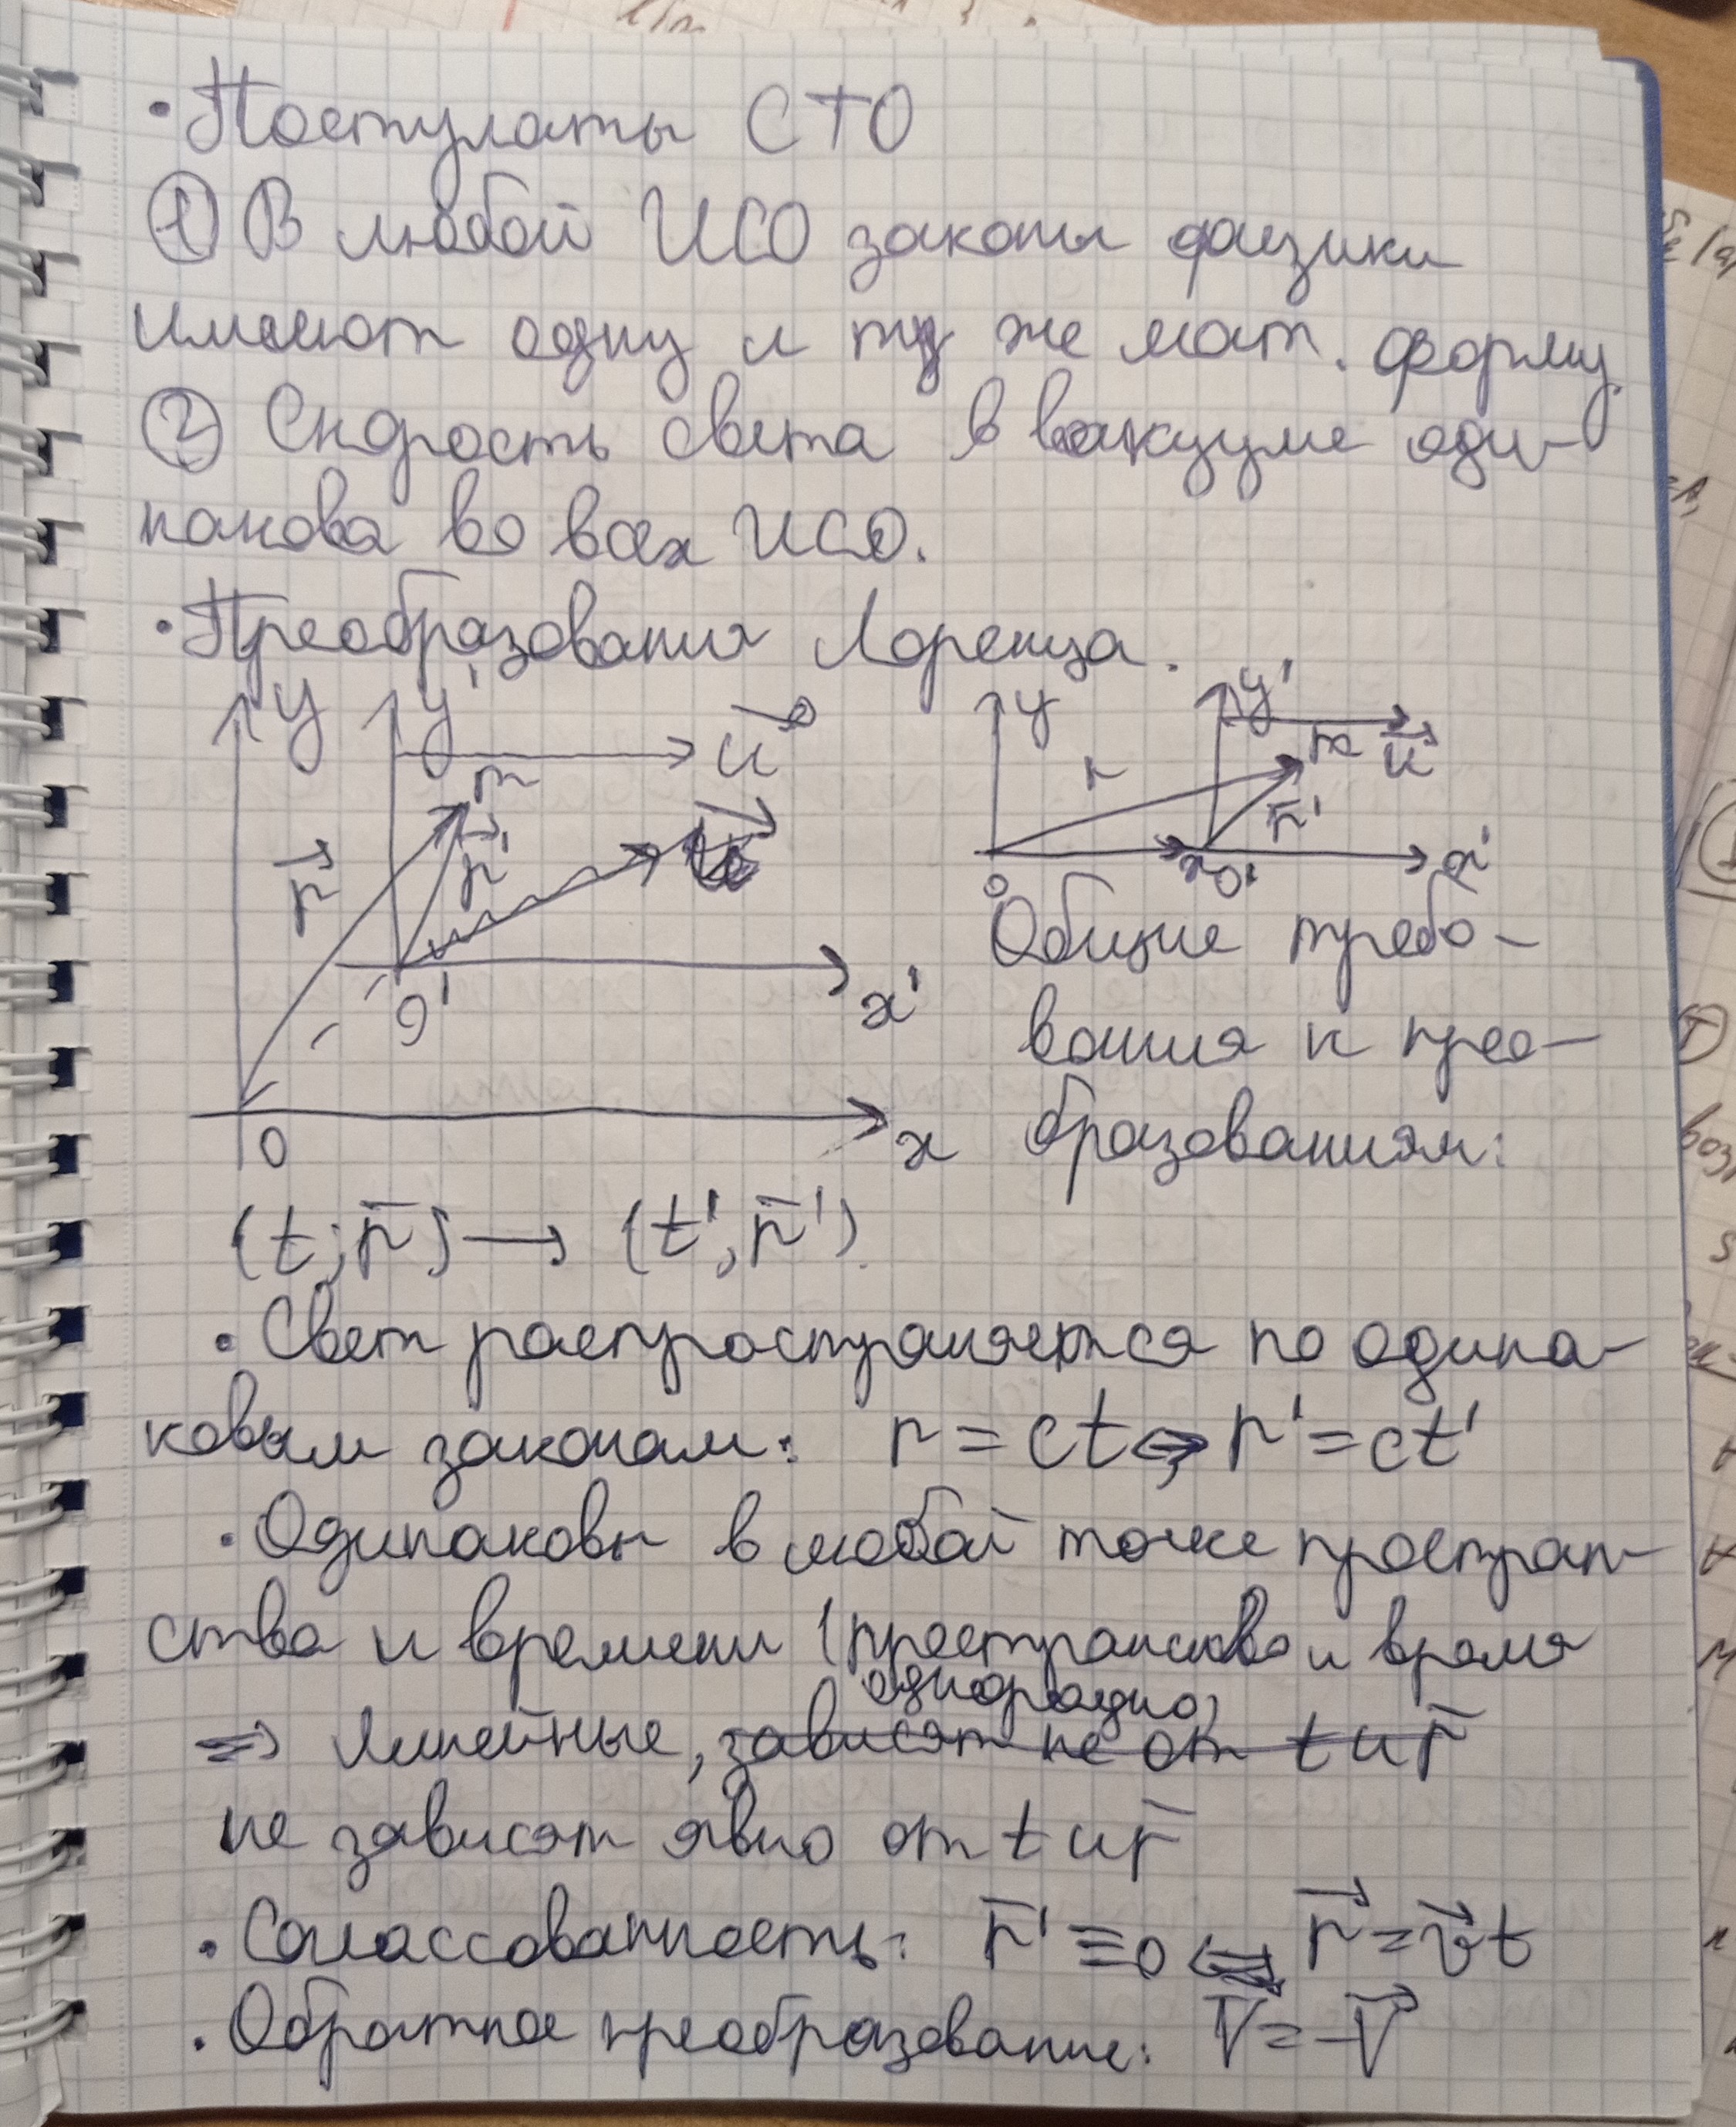 • Постулаты СТО
① В любой ИСО законы физики
имеют одну и ту же мат. форму.
② Скорость света в вакууме оди-
накова во всех ИСО.
• Преобразования Лоренца.
y y' u⃗ m r⃗ r⃗' O' x' O x
y y' m u⃗ r r̄' O O' x'
Общие требо-
вания к прео-
бразованиям:
(t; r̄) → (t', r̄').
• Свет распространяется по одина-
ковым законам: r = ct ⇔ r' = ct'
• Одинаковы в любой точке простран-
ства и времени (пространство и время
однородно)
⇒ линейные, зависят не от t и r̄
не зависят явно от t и r̄
• Согласованность: r̄' ≡ 0 ⇔ r⃗ = v⃗t
• Обратное преобразование: V̄ = -V⃗